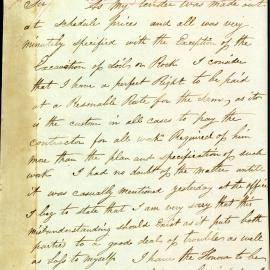 Sir As my Tender was made out
at schedule prices and all was very
minutely specified with the Exception of the
Excavation of Soil or Rock I consider
that I have a perfect Right to be paid
at a Resonable Rate for the Same, as it
is the custom in all cases to pay the
contractor for all work Required of him
more than the plan and specification of such
work I had no doubt of the Matter until
it was casually mentioned yesterday at the office
I beg to state that I am very sorry that this
misunderstanding should Exist as it puts both
parties to a good deal of trouble as well
as loss to myself I have the Honour to be